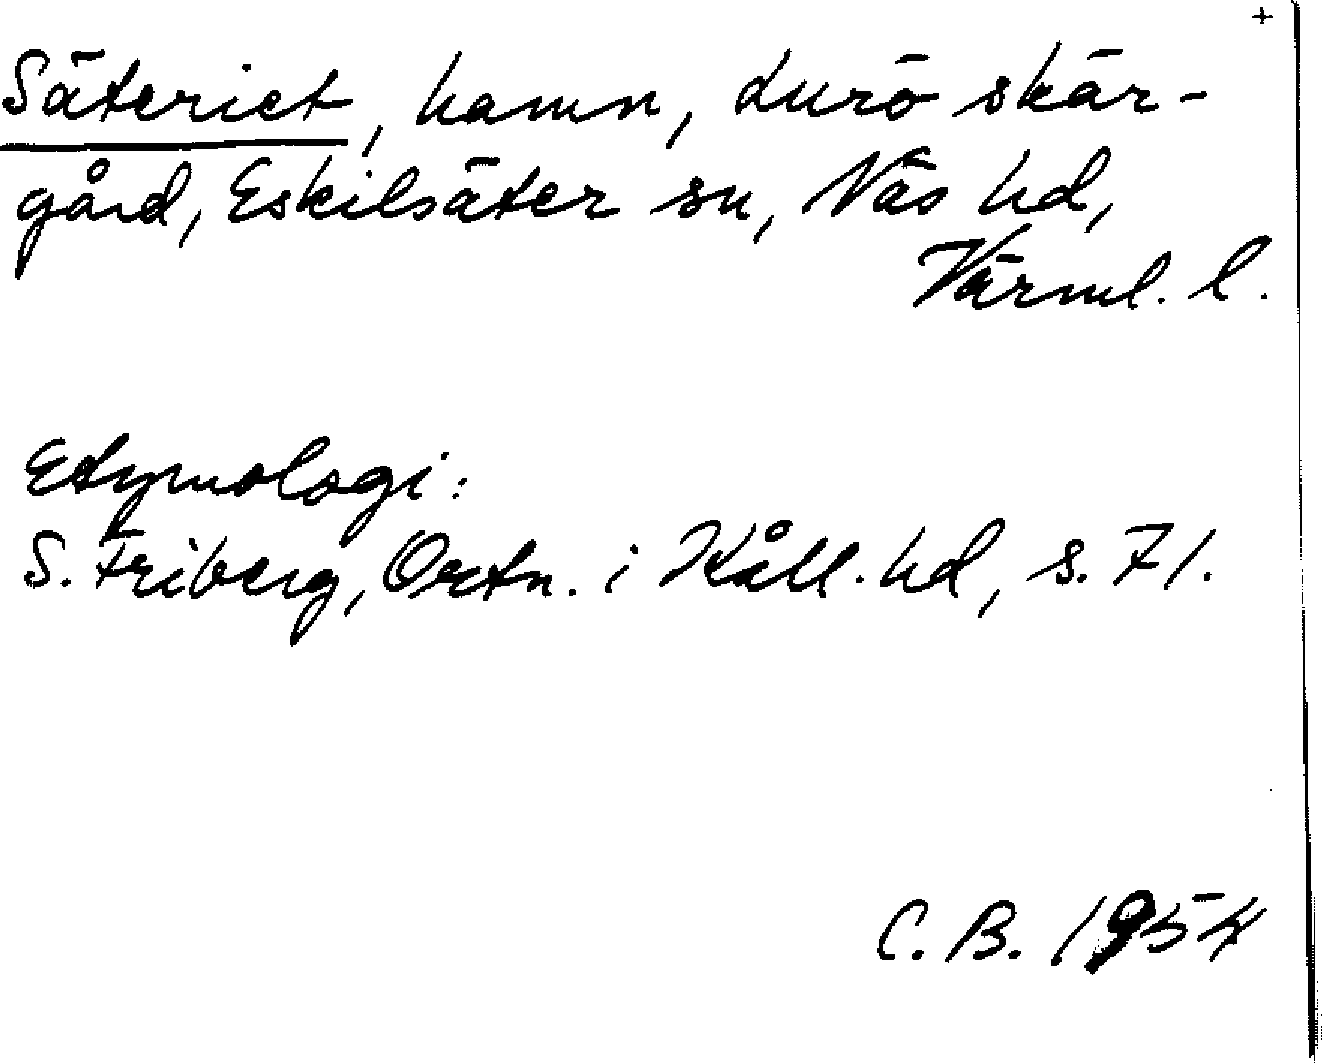 +
Säteriet, hamn, Lurö skär-
gård, Eskilsäter sn, Näs hd,
Värml. l.
Etymologi:
S. Friberg, Ortn. i Kåll. hd, s. 71.
C. B. 1954